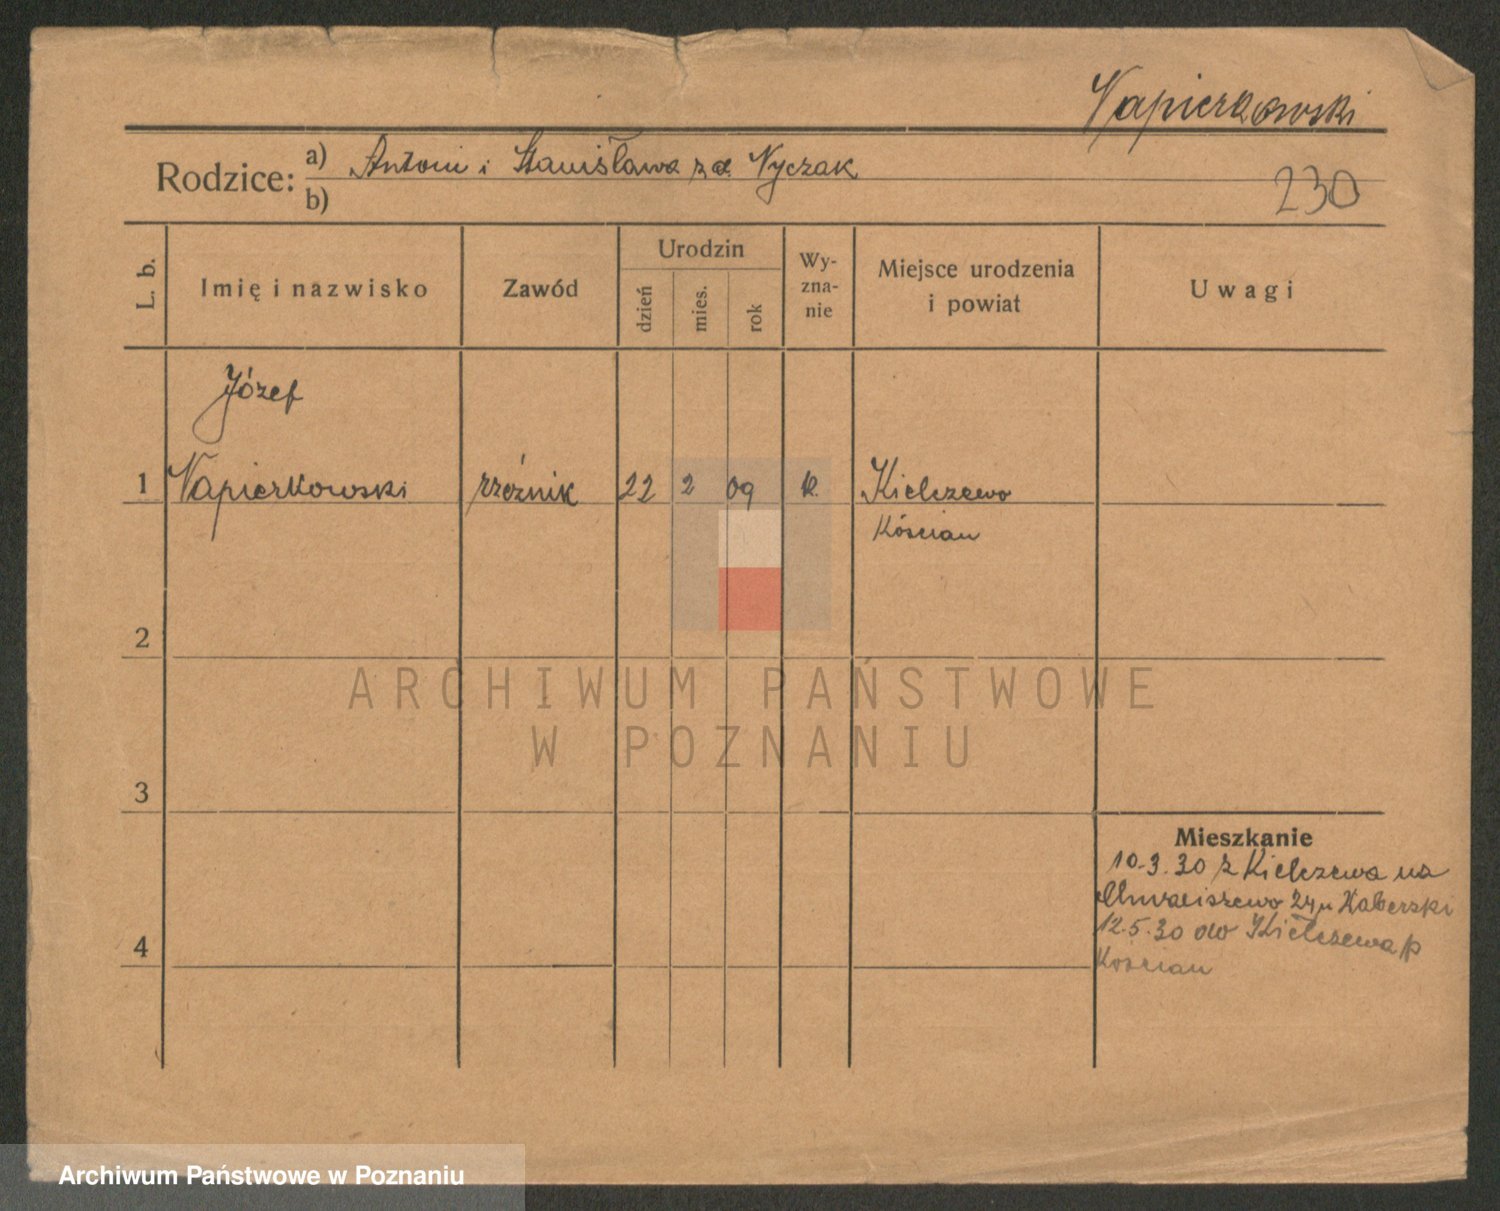 Napierkowski
Rodzice: a) Antoni i Stanisława z d. Nyczak
b)
230
L. b.
Imię i nazwisko
Zawód
Urodzin
dzień
mies.
rok
Wy-
zna-
nie
Miejsce urodzenia
i powiat
Uwagi
Józef
1 Napierkowski rzeźnik 22 2 09 k. Kielczewo
Kościan
2
ARCHIWUM PAŃSTWOWE
W POZNANIU
3
Mieszkanie
10.3.30 z Kielczewa na
Chwaliszewo 24 u Haberski
4
12.5.30 do Kiełczewa p
Kościan
Archiwum Państwowe w Poznaniu